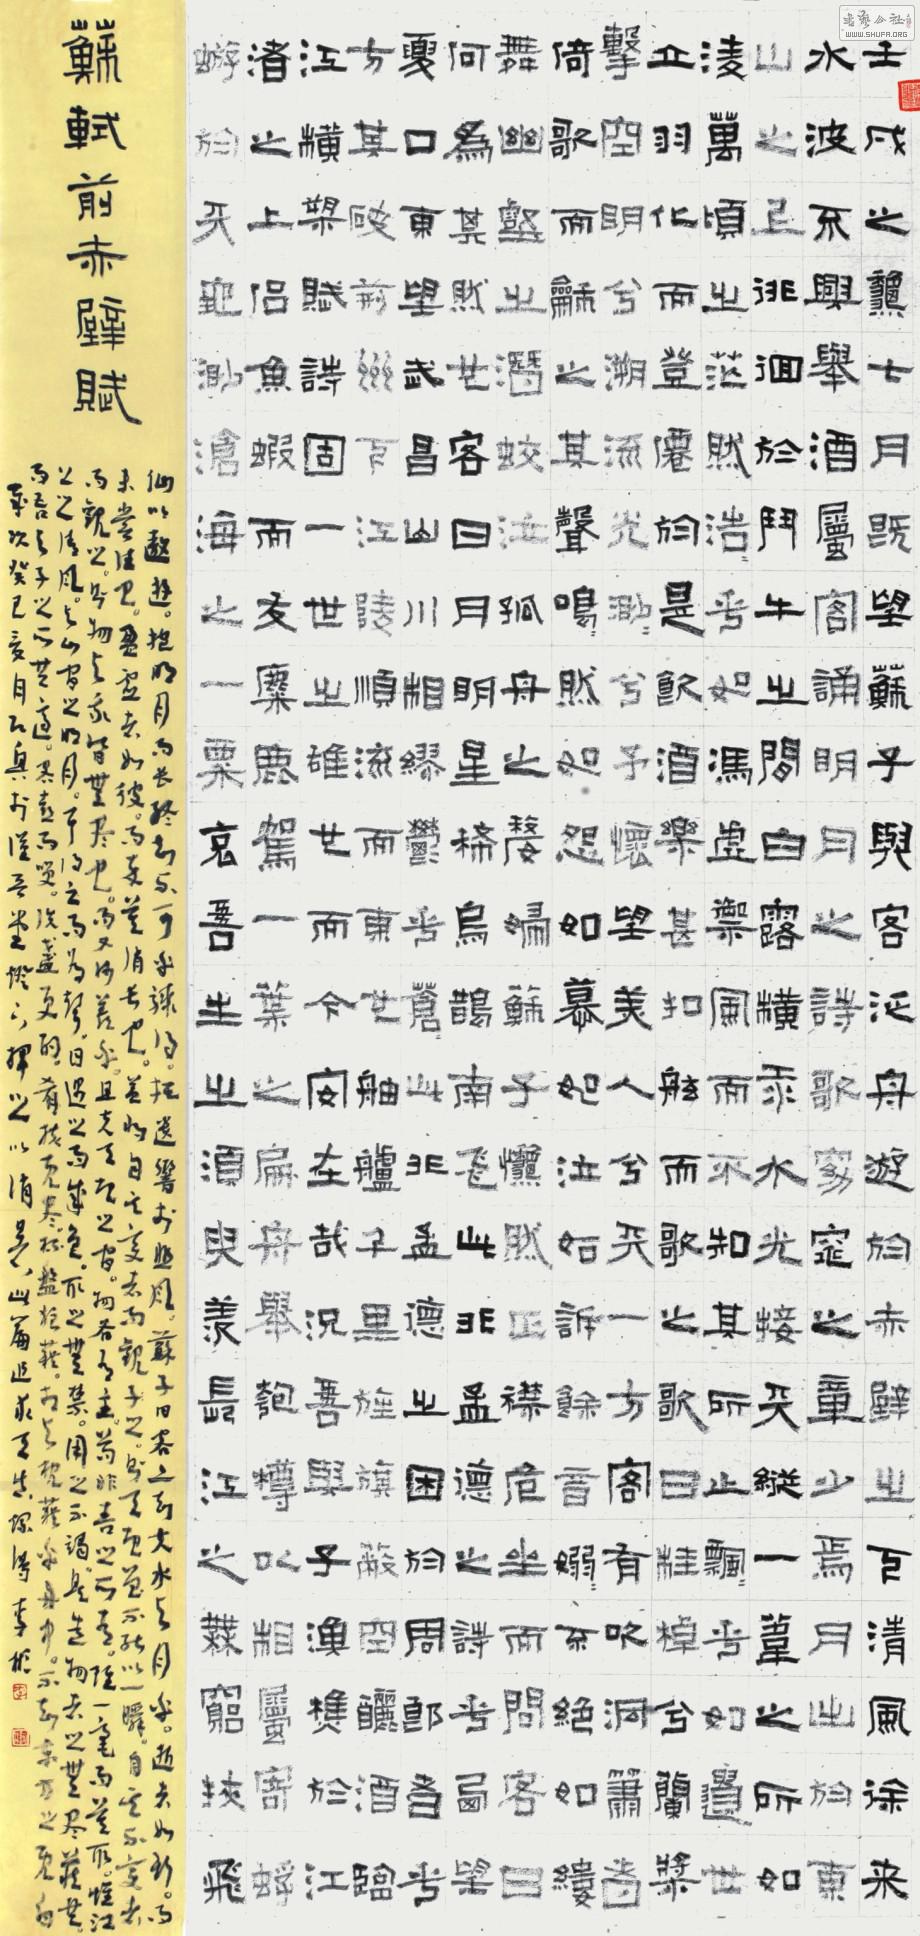 壬戌之龝七月既望蘇子與客泛舟遊於赤壁之下清風徐来
水波不興舉酒屬客誦明月之詩歌窈窕之章少焉月出於東
山之上徘徊於鬥牛之間白露橫江水光接天縱一葦之所如
淩萬頃之茫然浩〻乎如馮虛禦風而不知其所止飄〻乎如遺世
立羽化而登僊於是飲酒樂甚扣舷而歌之歌曰桂棹兮蘭槳
擊空明兮溯流光渺〻兮予懷望美人兮天一方客有吹洞簫者
倚歌而龢之其聲嗚〻然如怨如慕如泣如訴餘音嫋〻不絕如縷
舞幽壑之潛蛟泣孤舟之嫠婦蘇子愀然正襟危坐而問客曰
何為其然也客曰月明星稀烏鵲南飛此非孟德之詩乎西望
夏口東望武昌山川相繆鬱乎蒼〻此非孟德之困於周郎者乎
方其破荊州下江陵順流而東也舳艫千里旌旗蔽空釃酒臨
江橫槊賦詩固一世之雄也而今安在哉況吾與子漁樵於江
渚之上侶魚蝦而友麋鹿駕一葉之扁舟舉匏樽以相屬寄蜉
蝣於天地渺滄海之一粟哀吾生之須臾羨長江之無窮挾飛
蘇軾前赤壁賦
仙以遨遊。抱明月而長終。知不可乎驟得。托遺響於悲風。蘇子曰客亦知夫水與月乎。逝者如斯。而
未嘗往也。盈虛者如彼。而卒莫消長也。蓋將自其變者而觀之。則天地曾不能以一瞬。自其不變者
而觀之。則物與我皆無盡也。而又何羨乎。且夫天地之間。物各有主。苟非吾之所有。雖一毫而莫取。惟江
上之清風。與山間之明月。耳得之而為聲。目遇之而成色。取之無禁。用之不竭。是造物者之無盡藏也。
而吾與子之所共適。客喜而笑。洗盞更酌。肴核既盡杯盤狼藉。相與枕藉乎舟中。不知東方之既白
歲次癸巳夏月於堂燈下揮之以消暑此篇追求天真爛漫李彬
WWW.SHUFA.ORG